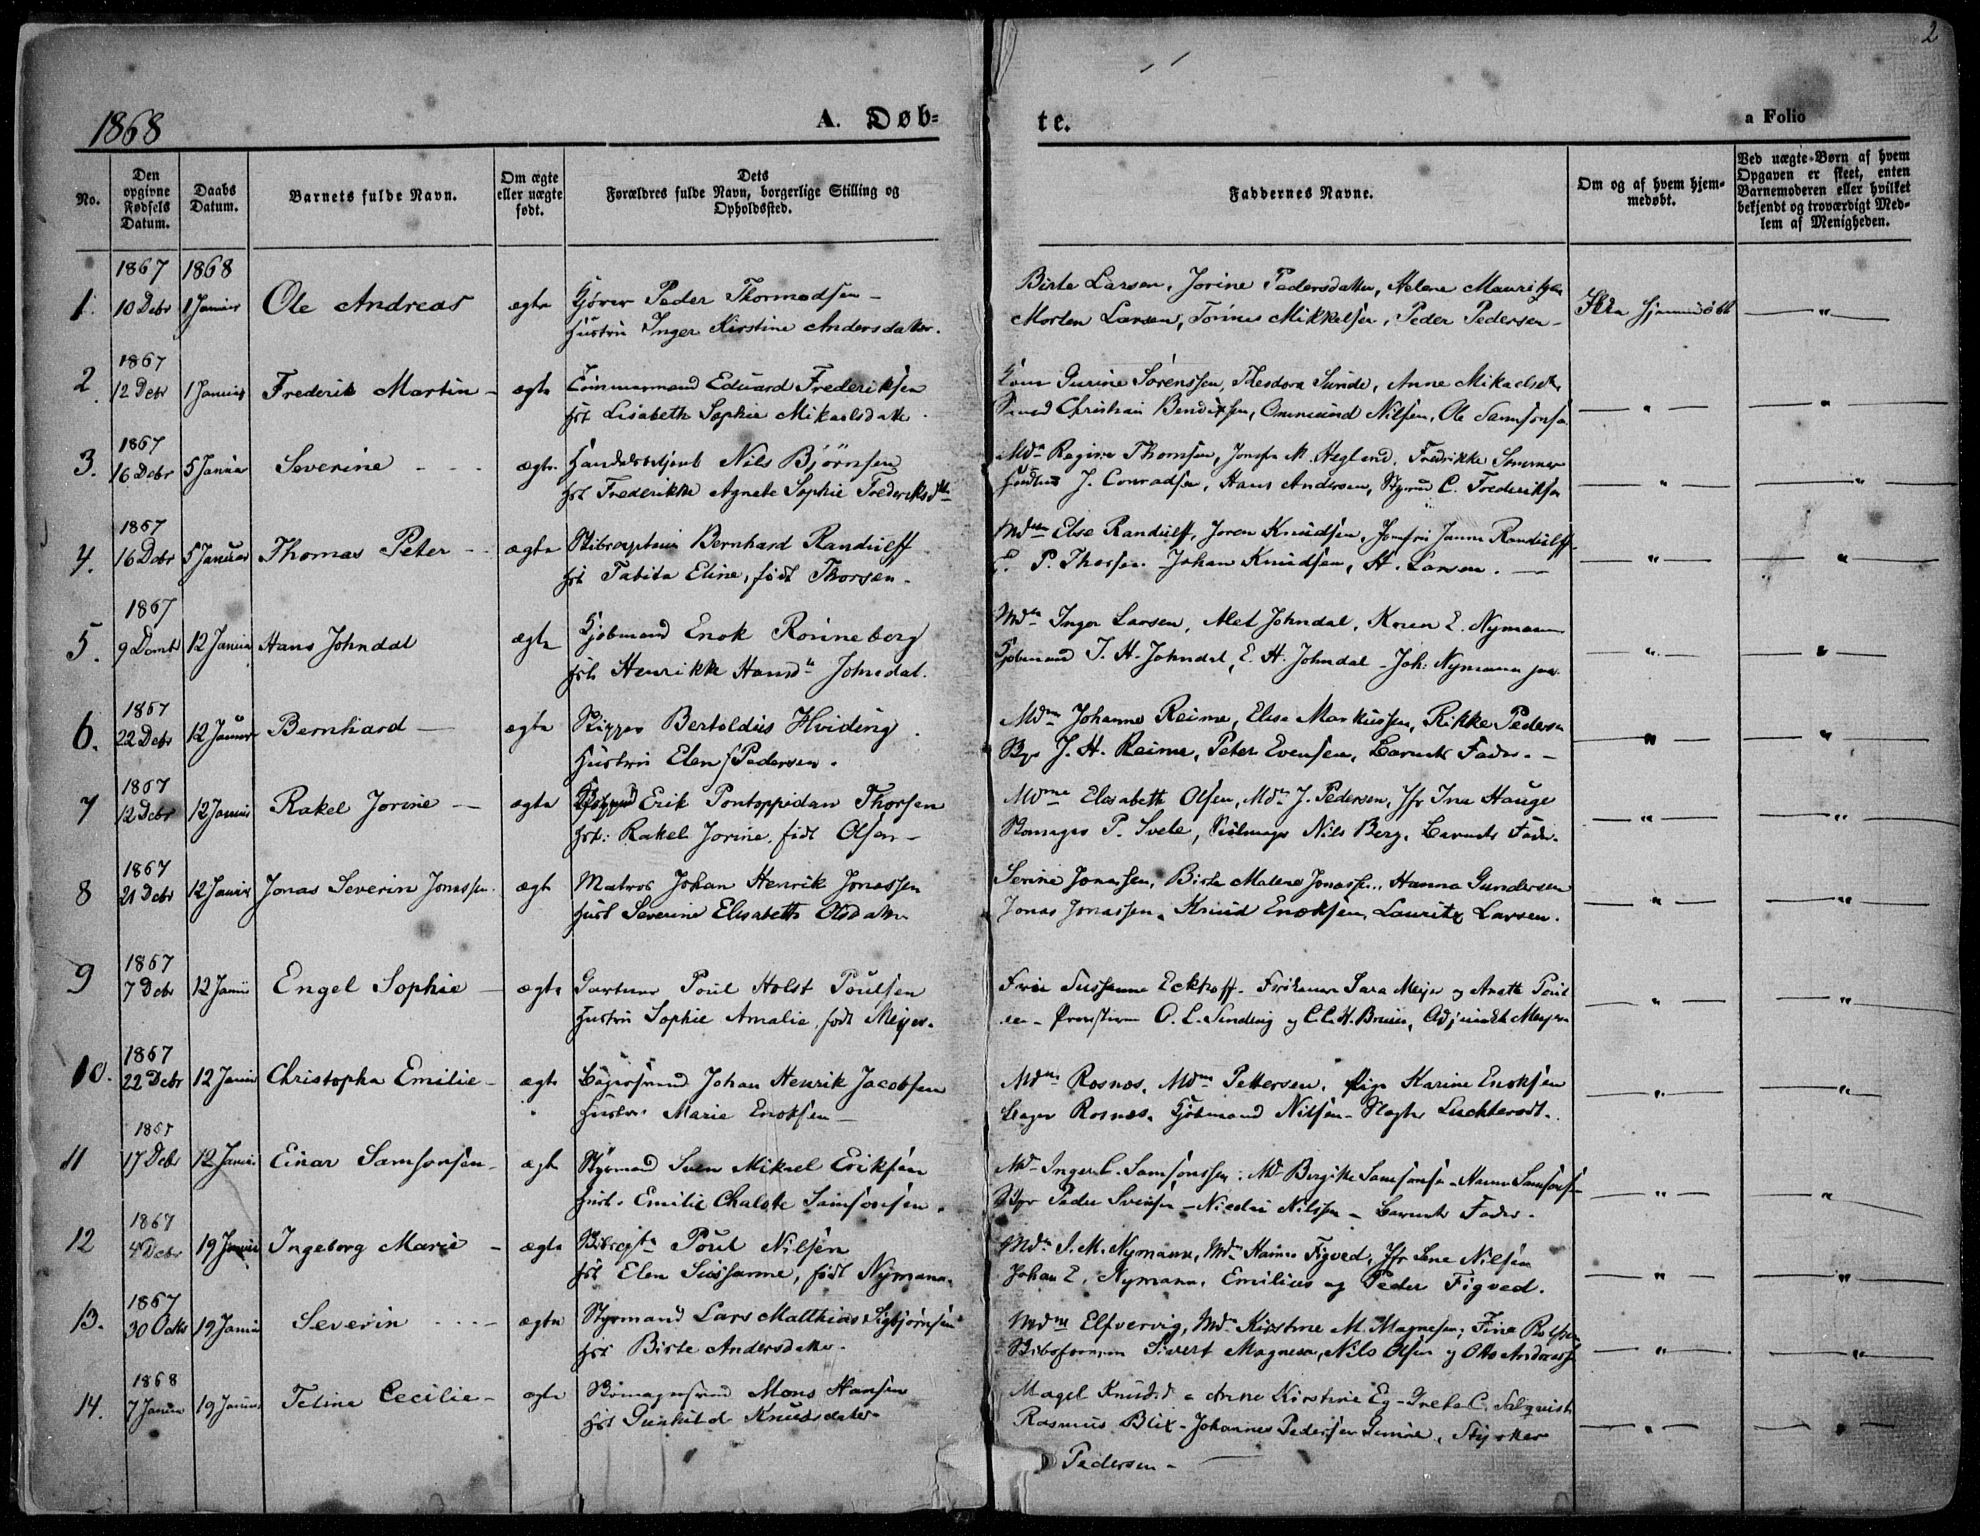 2
1868
A. Døb-
te.
a Folio
No.
Den opgivne Fødsels Datum.
Daabs Datum.
Barnets fulde Navn.
Om ægte eller uægte født.
Dets Forældres fulde Navn, borgerlige Stilling og Opholdssted.
Faddernes Navne.
Om og af hvem hjemmedøbt.
Ved uægte Børn af hvem Opgaven er skeet, enten Barnemoderen eller hvilket bekjendt og troværdigt Medlem af Menigheden.
1867 1868
1. 10 Debr 1 Januar Ole Andreas ægte Peder Thormodsen
Hustru Inger Kirstine Andersdatter.
Birte Larsen, Jorine Pedersdatter, Helene Mauritzen
Morten Larsen, Tønnes Mikkelsen, Peder Pedersen
Ikke hjemmedøbt "
1867
2. 12 Debr 1 Januar Frederik Martin ægte Tømmermand Eduard Frederiksen
Hst Lisabeth Sophie Mikaelsdatter
Gurine Sørenssen, Theodora Sunde, Anne Mikaelsdtr
Christian Bendixsen, Ommund Nilsen, Ole Samsonsen
" "
1867
3. 16 Debr 5 Januar Severine ægte Handelsbetjent Nils Bjørnsen
Hst Frederikke Agnete Sophie Frederiksdtr
Mdm Regine Thomsen, Jomfru M. Hegland, Fredrikke
J. Conradsen, Hans Andersen, Styrmd C. Frederiksen
" "
1867
4. 16 Debr 5 Januar Thomas Peter ægte Skibscaptain Bernhard Randulff
Hst Tabita Eline, født Thorsen.
Mdm Else Randulff, Joren Knudsen, Jomfru Janna Randulff
P. Thorsen Johan Knudsen, H. Larsen.
" "
1867
5. 9 12 Januar Hans Johndal ægte Kjøbmand Enok Rønneberg
Hst Henrikke Hansdtr Johndal.
Mdm Inger Larsen, Alet Johndal, Karen E. Nymann
Kjøbmand T. H. Johndal, E. H. Johndal - Joh: Nymann jun
" "
1867
6. 22 Debr 12 Januar Bernhard ægte Skipper Bertoldus Hviding
Hustru Elen Pedersen.
Mdm Johanne Reime, Elisa Markussen, Rikke Pedersen
J. H. Reime, Peter Evensen, Barnets Fader.
" "
1867
7 12 Debr 12 Januar Rakel Jorine ægte Erik Pontoppidan Thorsen
Hst: Rakel Jorine, født Olsen
Mdme Elisabeth Olsen, Mdm J. Pedersen, Jfr Ina Hauge
P. Svele, Nils Berg, Barnets Fader.
" "
1867
8 21 Debr 12 Januar Jonas Severin Jonassen. ægte Matros Johan Henrik Jonassen
Hust Severine Elisabeth Olsdatter
Serine Jonassen, Birte Malene Jonassen, Hanna Gundersen
Jonas Jonassen, Knud Enoksen, Lauritz Larsen.
" "
1867
9 7 Debr 12 Januar Engel Sophie ægte Gartner Poul Holst Poulsen
Hustru Sophie Amalie, født Meyer.
Frue Susanne Eckhoff. Frøkenerne Sara Meyer og Anette Poul
sen - O. L. Sinding og C. H. Bruun, Adjunct Meyer
" "
1867
10. 22 Debr 12 Januar Christopha Emilie ægte Johan Henrik Jacobsen
Hustru Marie Enoksen
Mdm Rosnes, Mdm Pettersen, Pige Karine Enoksen
Bager Rosnes, Kjøbmand Nilsen - Slagter Luchterodt.
" "
1867
11 17 Debr 12 Januar Einar Samsonsen ægte Styrmand Sven Mikael Eriksen
Hust. Emilie Chalotte Samsonsen.
Md Inger C. Samsonssen, Md Bergitte Samsonsen - Hanne Samsonsen
Peder Svensen - Nicolai Nilssen - Barnets Fader.
" "
1867
12 4 Debr 19 Januar Ingeborg Marie ægte Poul Nilsen
Hst Elen Susanne, født Nymann.
Mdm I. M. Nymann, Mdm Hanne Figved, Jfr Lene Nilsen
Johan E. Nymann, Emilius og Peder Figved.
" "
1867
13. 30 Octbr 19 Januar Severin ægte Styrmand Lars Matthias Sigbjørnsen
Hst Birte Andersdatter.
Mdme Elfvervig, Mdm Kirstine M. Magnesen, Fina
Sivert Magnesen, Nils Olsen og Otto Andreassen
" "
1868
14. 7 Januar 19 Januar Teline Cecilie ægte Mons Hansen
Hst Gunhild Knudsdatter
Magel Knudsd Anne Kirstine Eg - Grete C. Salquist
Rasmus Blix - Johannes Pedersen, Styrker
Pedersen
" "